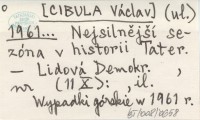 [CIBULA Václav] (ul.)
1961... Nejsilnější se-
zóna v historii Tater.
– Lidová Demokr. ,
nr (11 X): , il.
Wypadki górskie w 1961 r.